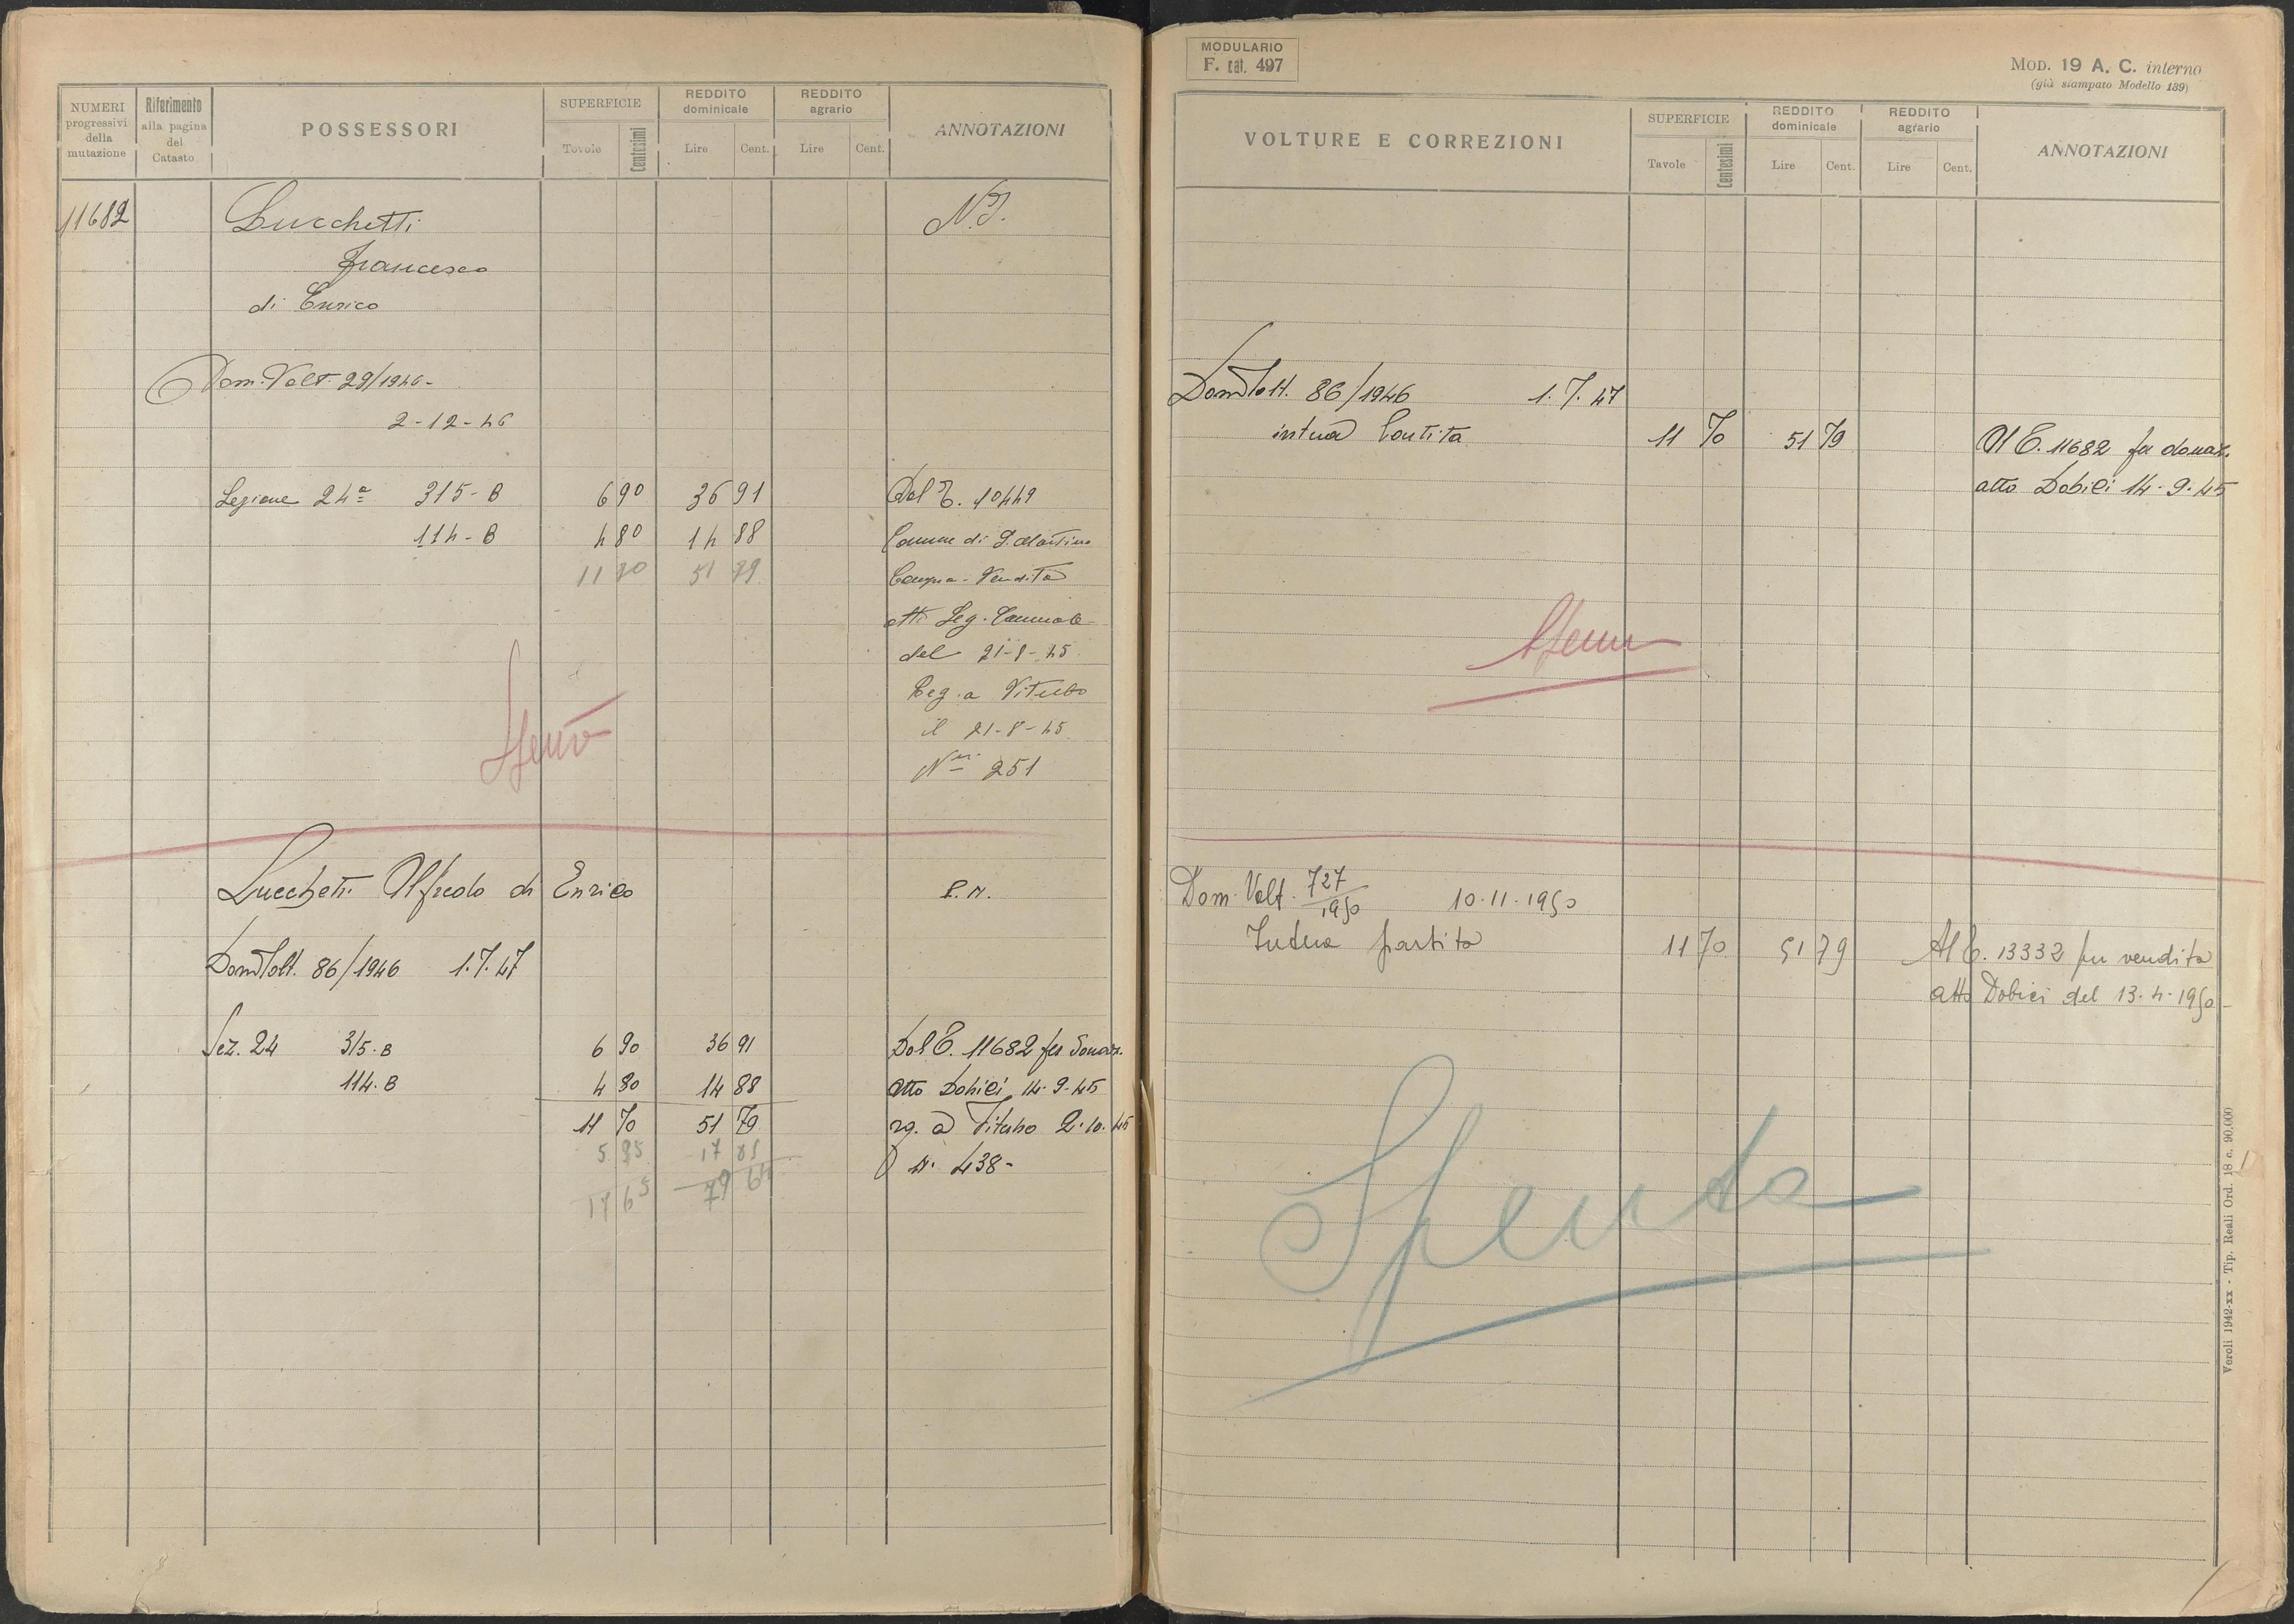 NUMERI progressivi della mutazione
Riferimento alla pagina del Catasto
POSSESSORI
SUPERFICIE
Tavole
Centesimi
REDDITO dominicale
Lire
Cent.
REDDITO agrario
Lire
Cent.
ANNOTAZIONI
11682
Lucchetti
N.I.
Francesco
di Enrico
Dom. Volt. 29/1946-
2-12-46
Sezione 24ª 315-B 6 90 36 91 Dal C. 10449
114-B 4 80 14 88 Comune di S. Martino
11 70 51 79 Compra-Vendita
atti Seg. Comunale
del 21-8-45
Reg. a Viterbo
il 21-8-45
N 251
Lucchetti Alfredo di Enrico P.N.
Dom Volt. 86/1946 1.7.47
Sez. 24 315.B 6 90 36 91 Dal C. 11682 per donaz.
114.B 4 80 14 88 atto Dobici 14-9-45
11 70 51 79 rg. a Viterbo 2.10.45
5 95 17 85 N. 438-
17 65 79 64
MODULARIO
F. cat. 497
MOD. 19 A. C. interno
(già stampato Modello 139)
VOLTURE E CORREZIONI
SUPERFICIE
Tavole
Centesimi
REDDITO dominicale
Lire
Cent.
REDDITO agrario
Lire
Cent.
ANNOTAZIONI
Dom Volt. 86/1946 1.7.47
intera Partita 11 70 51 79 Al C. 11682 per donaz.
atto Dobici 14-9-45
Dom. Volt. 727/1950 10.11.1950
Intera partita 11 70 51 79 Al C. 13332 per vendita
atto Dobici del 13.4.1950-
Spenta
Veroli 1942-xx - Tip. Reali Ord. 18 c. 90.000